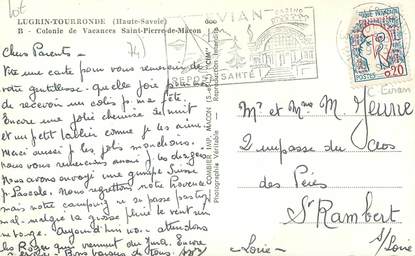 Lot
LUGRIN-TOURRONDE (Haute-Savoie)
B - Colonie de Vacances Saint-Pierre-de-Macon
74)
EVIAN
CASINO
REPOS SANTÉ
POSTES
0,20
Chers Parents -
Vite une carte pour vous remercier de
votre gentillesse. quelle joie
de recevoir un colis p. ma fête.
Encore une jolie chemise de nuit
et un petit tablier comme je les aime
Merci aussi p. les jolis mouchoirs.
nous vous remercions aussi p. les
Nous avons envoyé une grimpe Suisse
p. Pascale. Nous regrettons notre Provence
mais notre camping se passe
mal. malgré la grosse pluie le vent
orage. Aujourd'hui attendons
les qui viennent du Jura. Encore
Bons baisers de tous.
COMBIER IMP. MACON (S.-et-L.) "CIM"
Photographie Véritable - Reproduction Interdite
Mr et Mme M. Jeune
2 impasse du Clos
des Pères
St Rambert
s/Loire
- Loire -